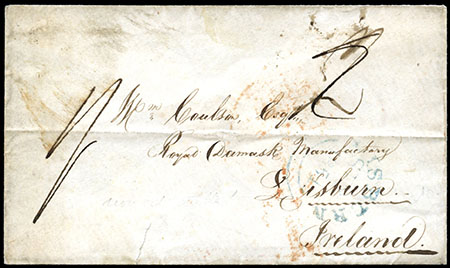 2
Wm Coulson, Esqr,
Royal Damask Manufactory
Lisburn.
Ireland.